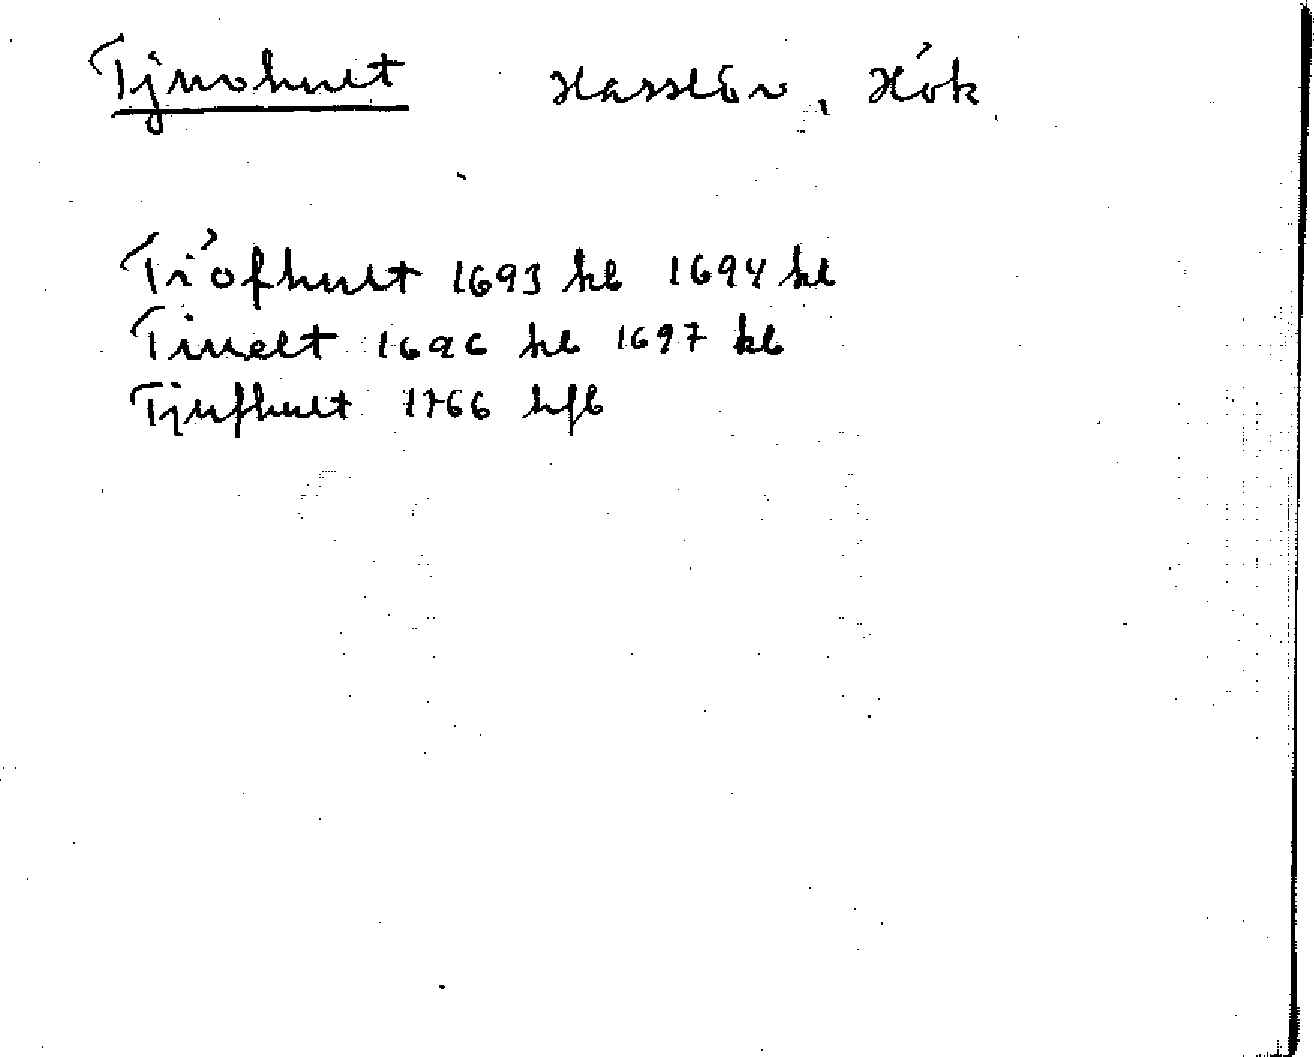 Tjuvhult Hasslöv, Hök
Tiófhult 1693 kb 1694 kb
Tiuelt 1696 kb 1697 kb
Tjufhult 1766 hfb